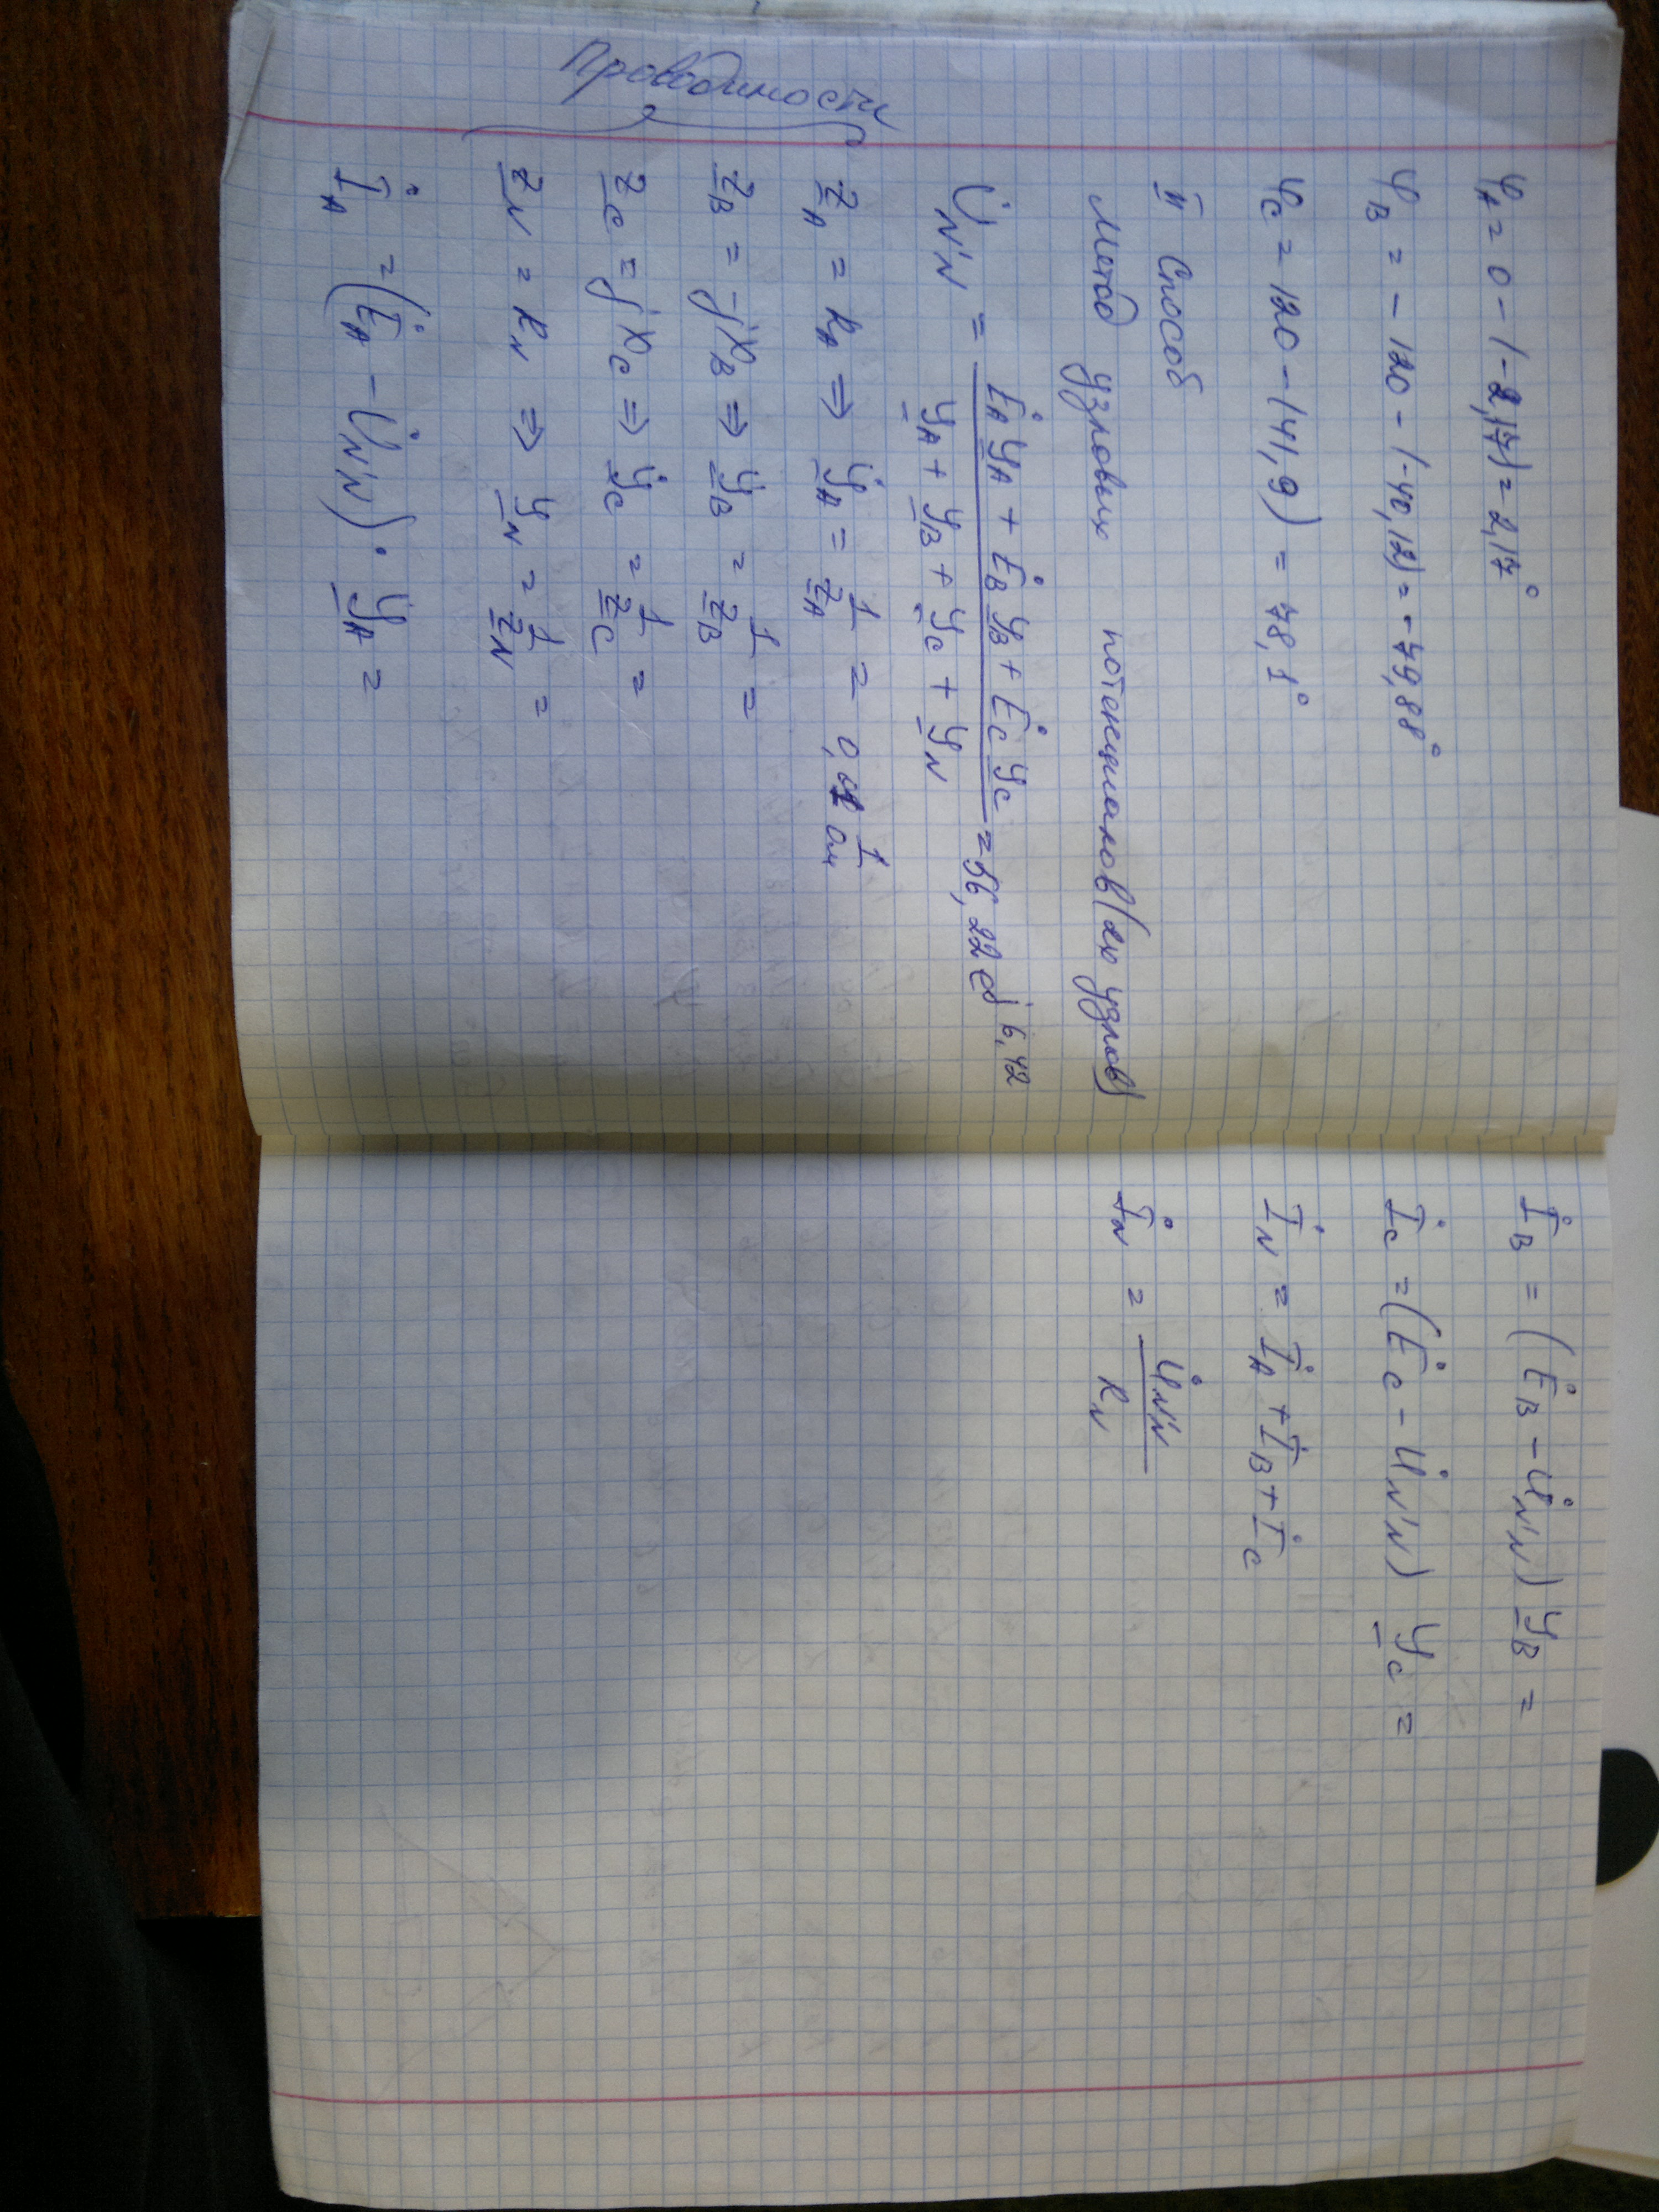 φ_A = 0 - (-2,17) = 2,17°
φ_B = - 120 - (-40,12) = -79,88°
φ_C = 120 - (41,9) = 78,1°
II Способ
Метод узловых потенциалов (2х узлов)
U̇_N'N = (Ė_A Y_A + Ė_B Y_B + Ė_C Y_C) / (Y_A + Y_B + Y_C + Y_N) = 56,22 e^j 6,42
Проводимости
Z_A = R_A ⇒ Y_A = 1/Z_A = 0,01 1/Ом
Z_B = -jX_B ⇒ Y_B = 1/Z_B =
Z_C = jX_C ⇒ Y_C = 1/Z_C =
Z_N = R_N ⇒ Y_N = 1/Z_N =
İ_A = (Ė_A - U̇_N'N) · Y_A =
İ_B = (Ė_B - U̇_N'N) Y_B =
İ_C = (Ė_C - U̇_N'N) Y_C =
İ_N = İ_A + İ_B + İ_C
İ_N = U̇_N'N / R_N